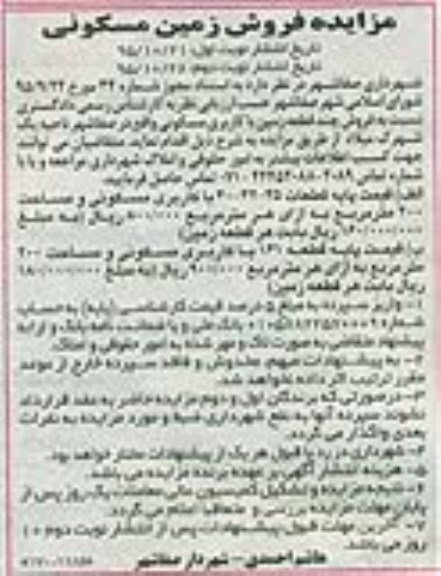 مزایده فروش زمین مسکونی
تاریخ انتشار نوبت اول: ۹۵/۱۰/۲۱
تاریخ انتشار نوبت دوم: ۹۵/۱۰/۲۸
شهرداری صفاشهر در نظر دارد به استناد مجوز شماره ۳۴ مورخ ۹۵/۹/۲۲
شورای اسلامی شهر صفاشهر حسب ارزیابی نظریه کارشناس رسمی دادگستری
نسبت به فروش چند قطعه زمین با کاربری مسکونی واقع در صفاشهر ناحیه یک
شهرک میلاد از طریق مزایده به شرح ذیل اقدام نماید. متقاضیان می توانند
جهت کسب اطلاعات بیشتر به امور حقوقی و املاک شهرداری مراجعه و یا با
شماره تماس تماس حاصل فرمایید.
الف) قیمت پایه قطعات با کاربری مسکونی و مساحت
۲۰۰ مترمربع به ازای هر مترمربع ۸۰۰/۰۰۰ ریال (به مبلغ
۱۶۰/۰۰۰/۰۰۰ ریال بابت هر قطعه زمین)
ب) قیمت پایه قطعه با کاربری مسکونی و مساحت ۲۰۰
متر مربع به ازای هر مترمربع ۹۰۰/۰۰۰ ریال (به مبلغ ۱۸۰/۰۰۰/۰۰۰
ریال بابت هر قطعه زمین)
۱- واریز سپرده به مبلغ ۵ درصد قیمت کارشناسی (پایه) به حساب
شماره بانک ملی و یا ضمانت نامه بانک و ارایه
پیشنهاد متقاضی به صورت لاک و مهر شده به امور حقوقی و املاک.
۲- به پیشنهادات مبهم، مخدوش و فاقد سپرده خارج از موعد
مقرر ترتیب اثر داده نخواهد شد.
۳- در صورتی که برندگان اول و دوم مزایده حاضر به عقد قرارداد
نشوند سپرده آنها به نفع شهرداری ضبط و مورد مزایده به نفرات
بعدی واگذار می گردد.
۴- شهرداری در رد یا قبول هر یک از پیشنهادات مختار خواهد بود.
۵- هزینه انتشار آگهی بر عهده برنده مزایده می باشد.
۶- نتیجه مزایده و تشکیل کمیسیون عالی معاملات یک روز پس از
پایان مهلت مزایده بررسی و متعاقبا اعلام می گردد.
۷- آخرین مهلت قبول پیشنهادات پس از انتشار نوبت دوم ۱۰
روز می باشد.
هاشم احمدی - شهردار صفاشهر